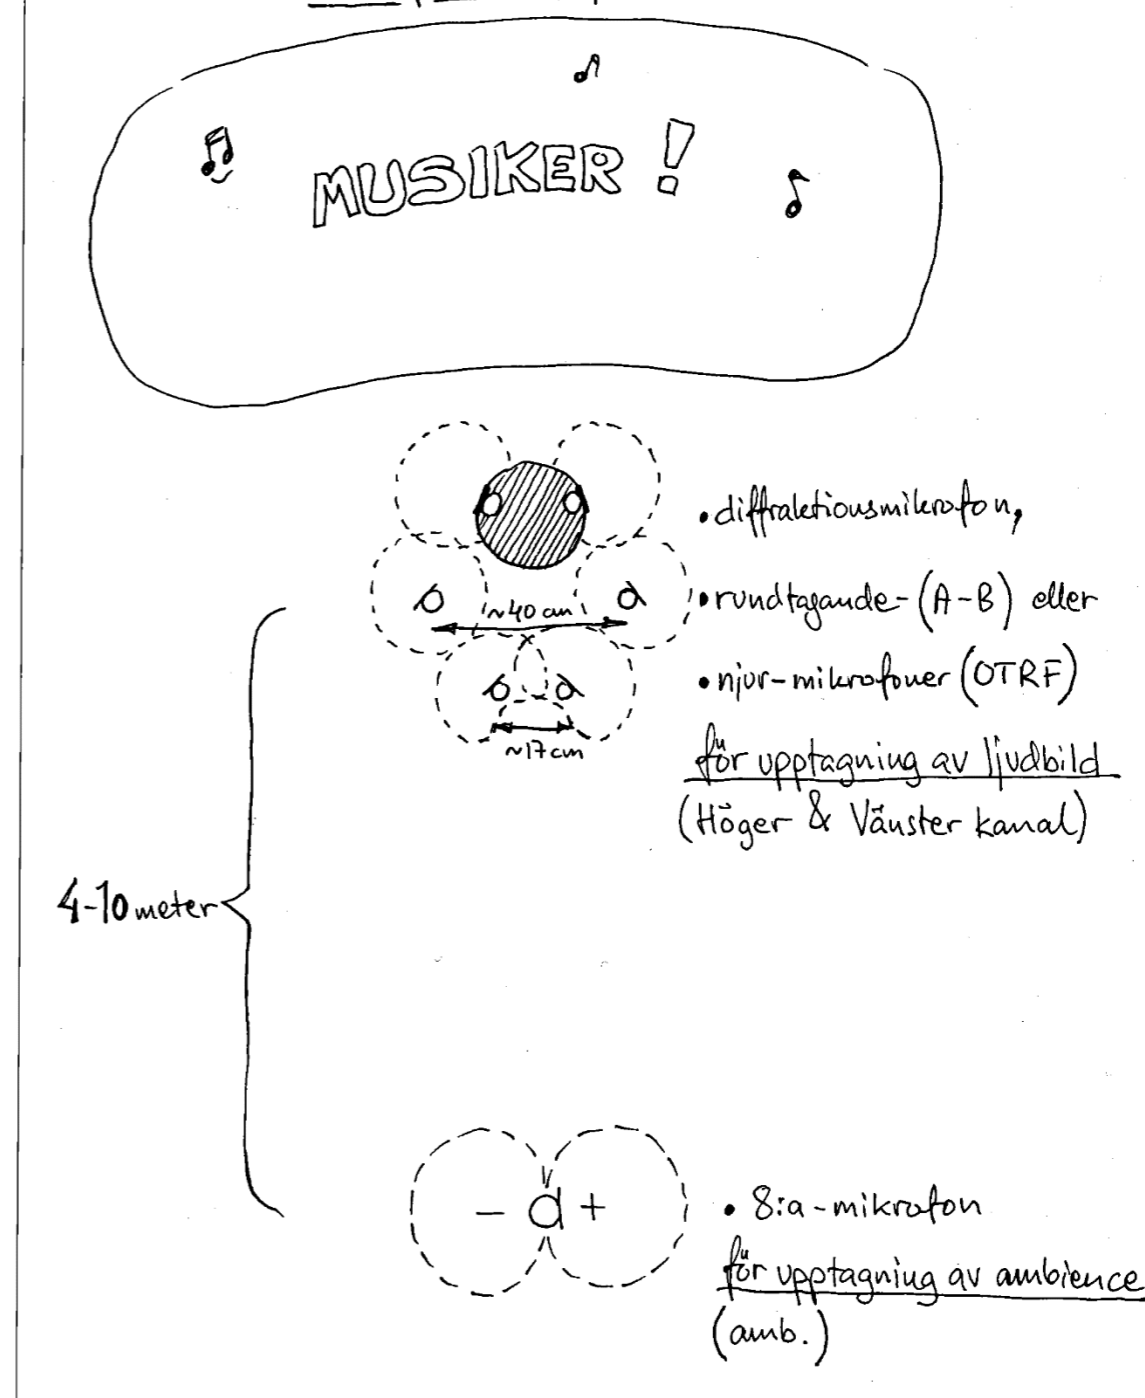 MUSIKER!
• diffraktionsmikrofon,
• rundtagande-(A-B) eller
~40 cm
• njur-mikrofoner (OTRF)
~17 cm
för upptagning av ljudbild
(Höger & Vänster kanal)
4-10 meter
- +
• 8:a-mikrofon
för upptagning av ambience
(amb.)